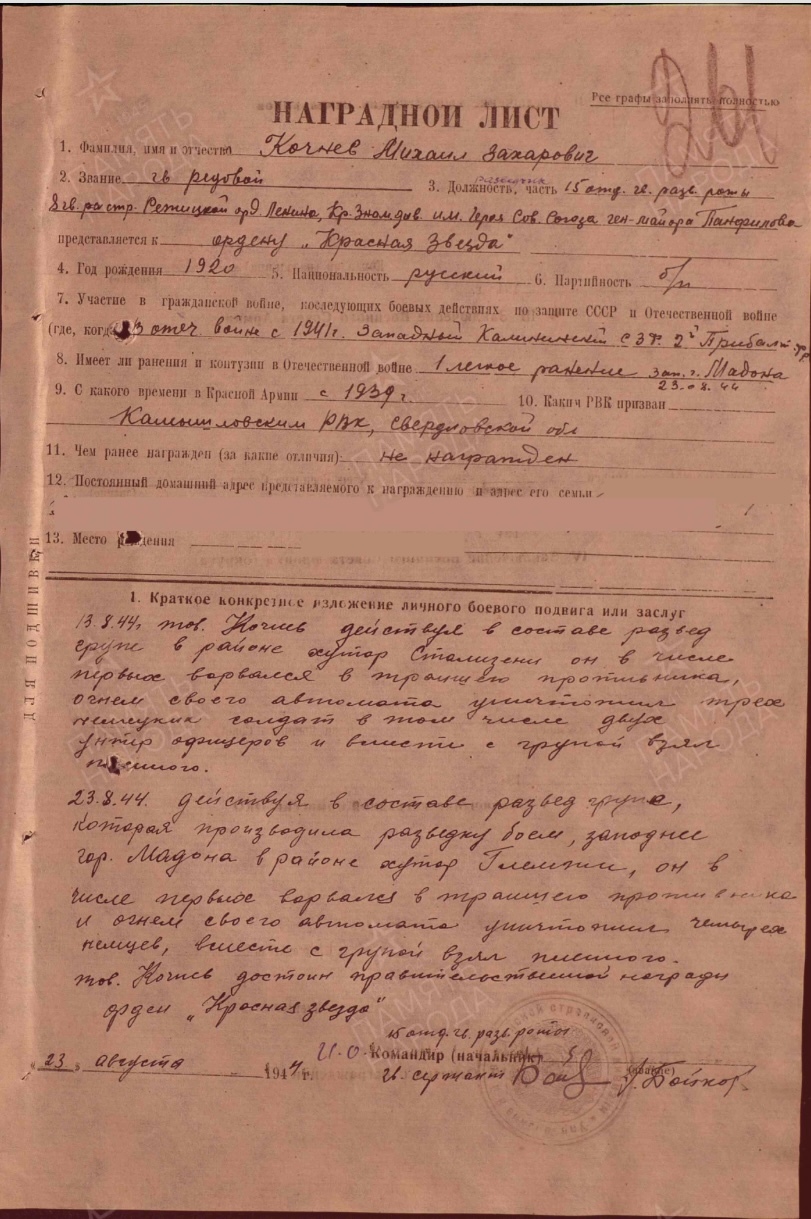 Все графы заполнять полностью
НАГРАДНОЙ ЛИСТ
1. Фамилия, имя и отчество Кочнев Михаил Захарович
2. Звание гв рядовой 3. Должность, часть разведчик 15 отд. гв. разв. роты
8 гв. растр. Режицкой орд Ленина, Кр. Знам див. им. Героя Сов. Союза ген-майора Панфилова
представляется к ордену „Красная Звезда"
4. Год рождения 1920 5. Национальность русский 6. Партийность б/п
7. Участие в гражданской войне, последующих боевых действиях по защите СССР и Отечественной войне
(где, когда) В отеч войне с 1941 г. Западный Калининский СЗФ. 2й Прибалт. фр
8. Имеет ли ранения и контузии в Отечественной войне 1 легкое ранение зап. г. Мадона
23.08.44
9. С какого времени в Красной Армии с 1939 г 10. Каким РВК призван
Камышловским РВК, Свердловской обл
11. Чем ранее награжден (за какие отличия) не награжден
12. Постоянный домашний адрес представляемого к награждению и адрес его семьи
13. Место рождения
ДЛЯ ПОДШИВКИ
1. Краткое конкретное изложение личного боевого подвига или заслуг
13.8.44г тов. Кочнев действуя в составе развед
групе в районе хутор Стализени он в числе
первых ворвался в траншею противника,
огнем своего автомата уничтожил трех
немецких солдат в том числе двух
унтер офицеров и вместе с групой взял
пленного.
23.8.44. действуя в составе развед групе,
которая производила разведку боем, западнее
гор. Мадона в районе хутор он в
числе первых ворвался в траншею противника
и огнем своего автомата уничтожил четырех
немцев, вместе с групой взял пленного.
тов. Кочнев достоин правительственной награды
орден „Красная звезда"
15 отд. гв. разв. роты
И.О. Командир (начальник)
„23" августа 1944 г. гв. сержант (звание) Бойков
ПАМЯТЬ НАРОДА